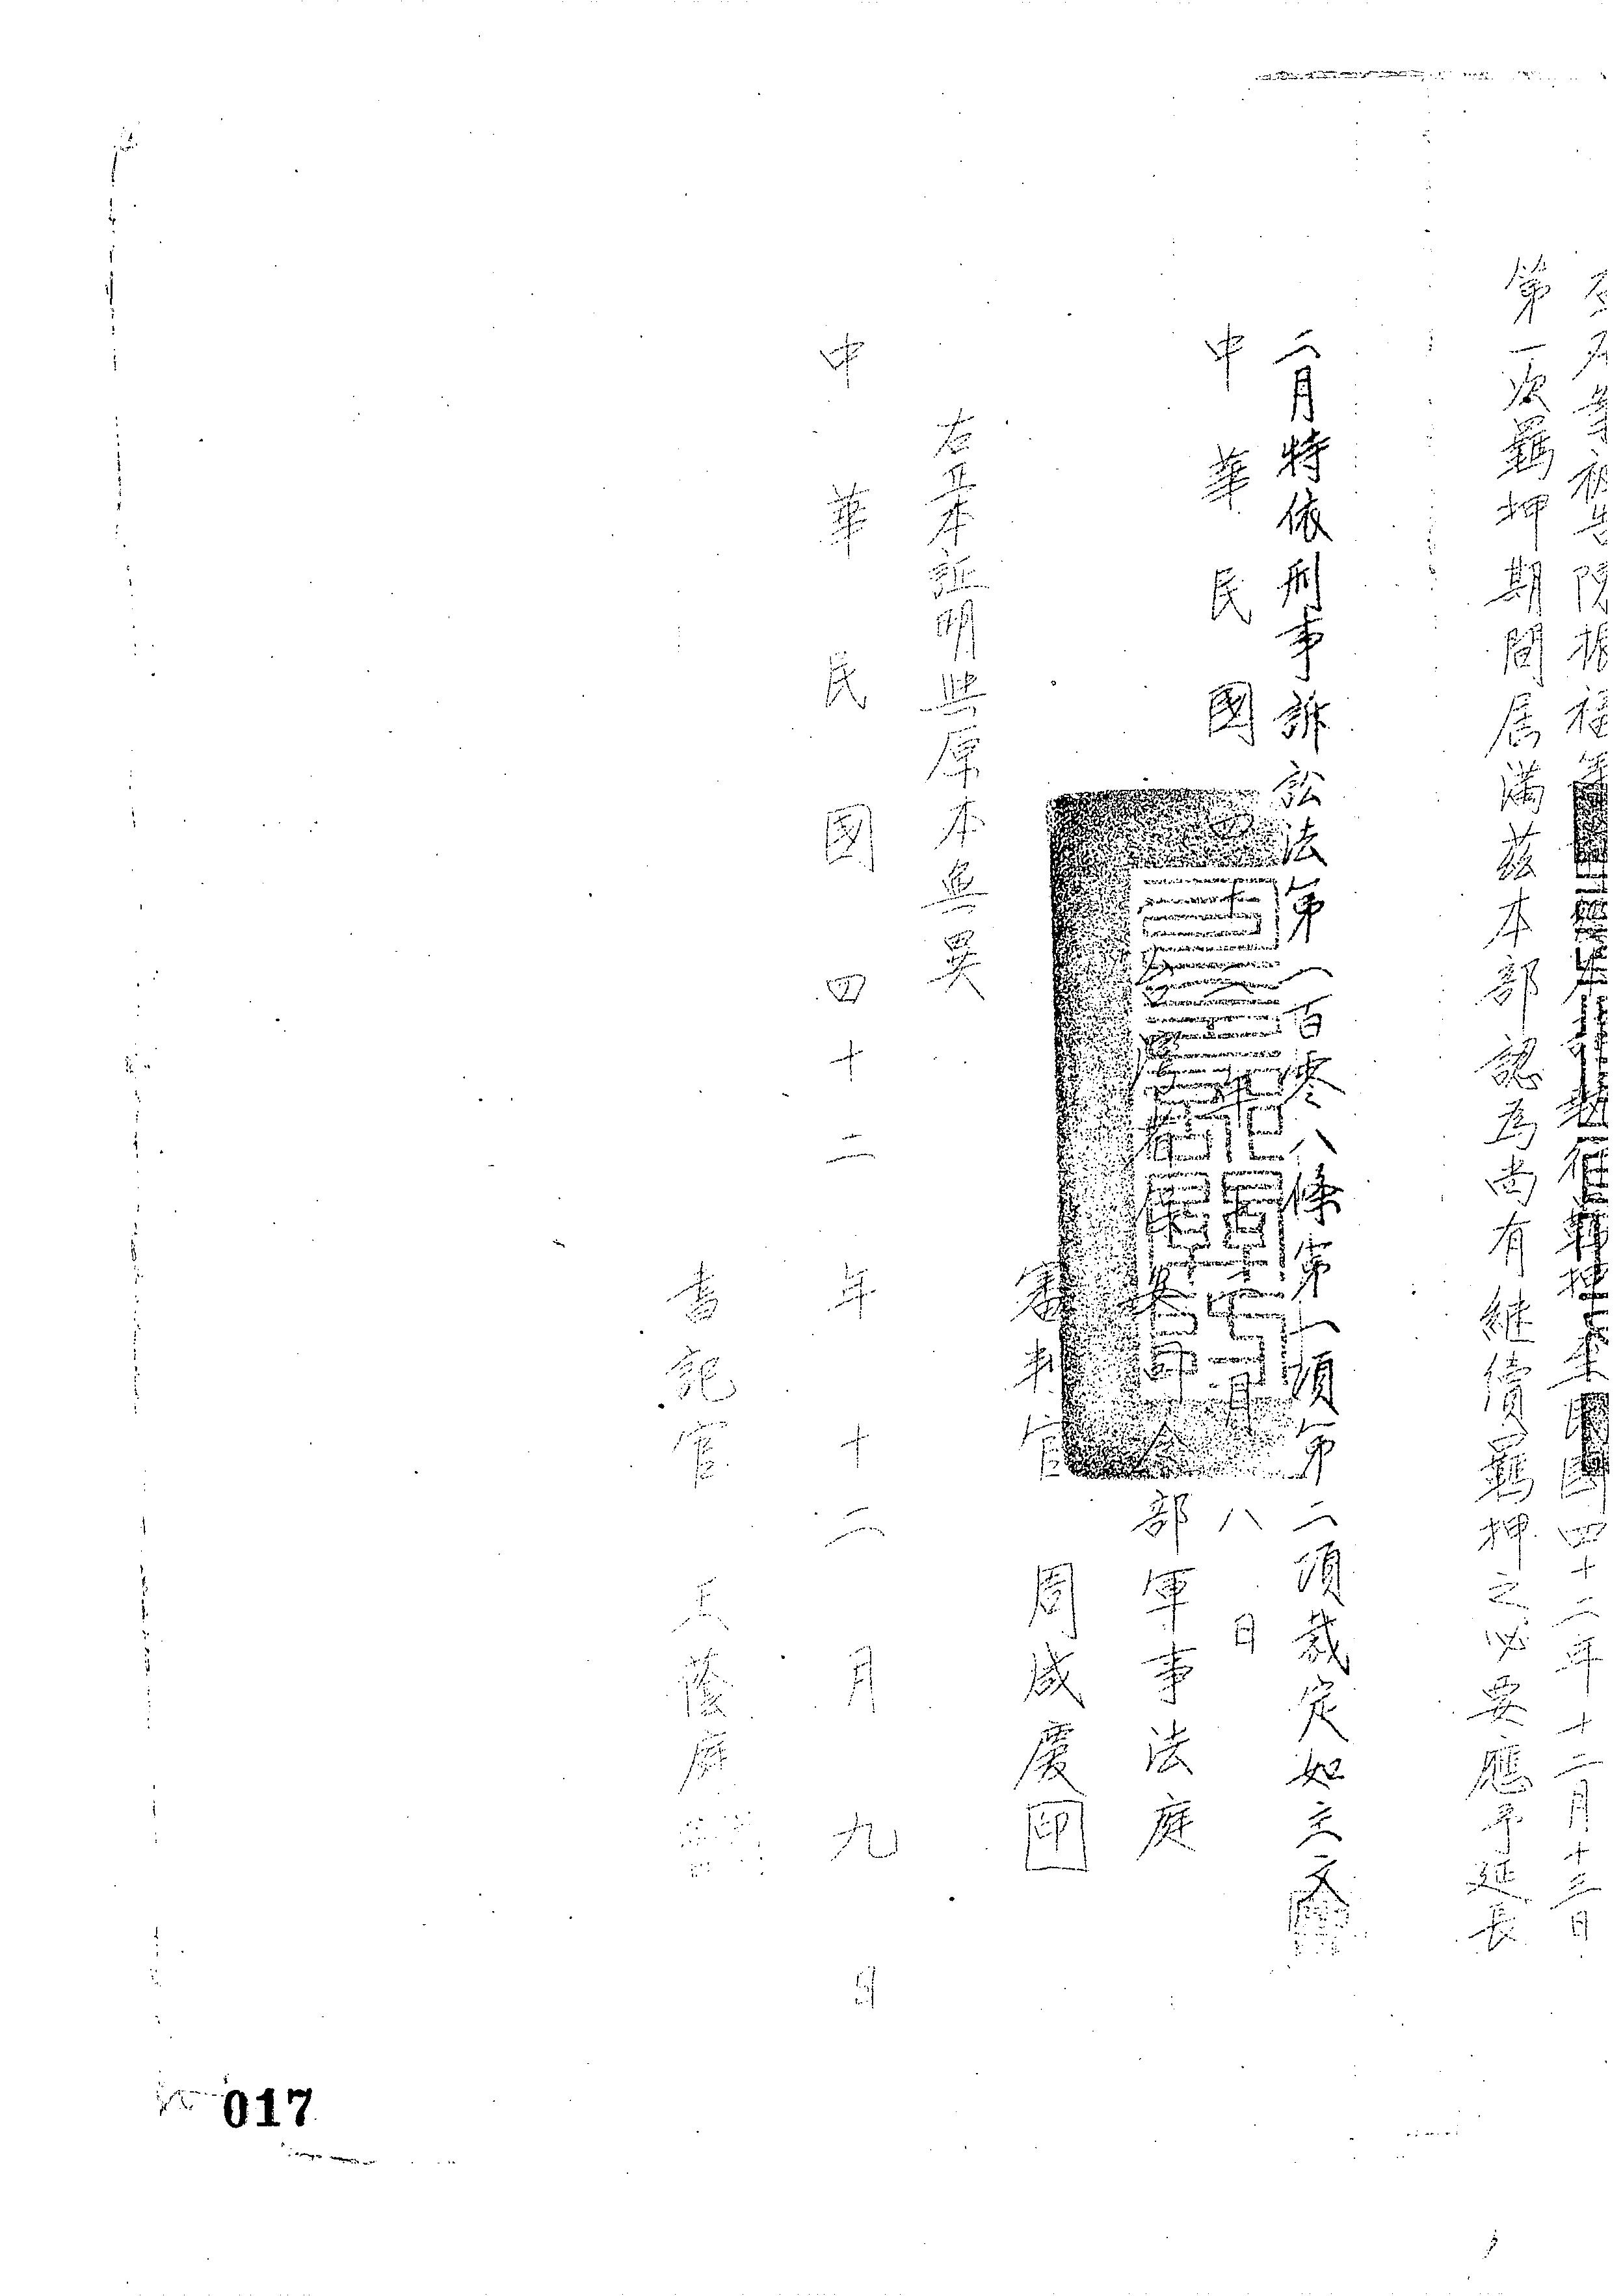 查本案被告陳振福等
執行羈押至民國四十二年十二月十三日
第一次羈押期間屆滿茲本部認為尚有繼續羈押之必要應予延長
二月特依刑事訴訟法第一百零八條第一項第二項裁定如主文
中華民國四十二年十二月八日
保安司令部軍事法庭
審判官 周咸慶 印
右正本証明與原本無異
中華民國四十二年十二月九日
書記官 王蔭庭
017